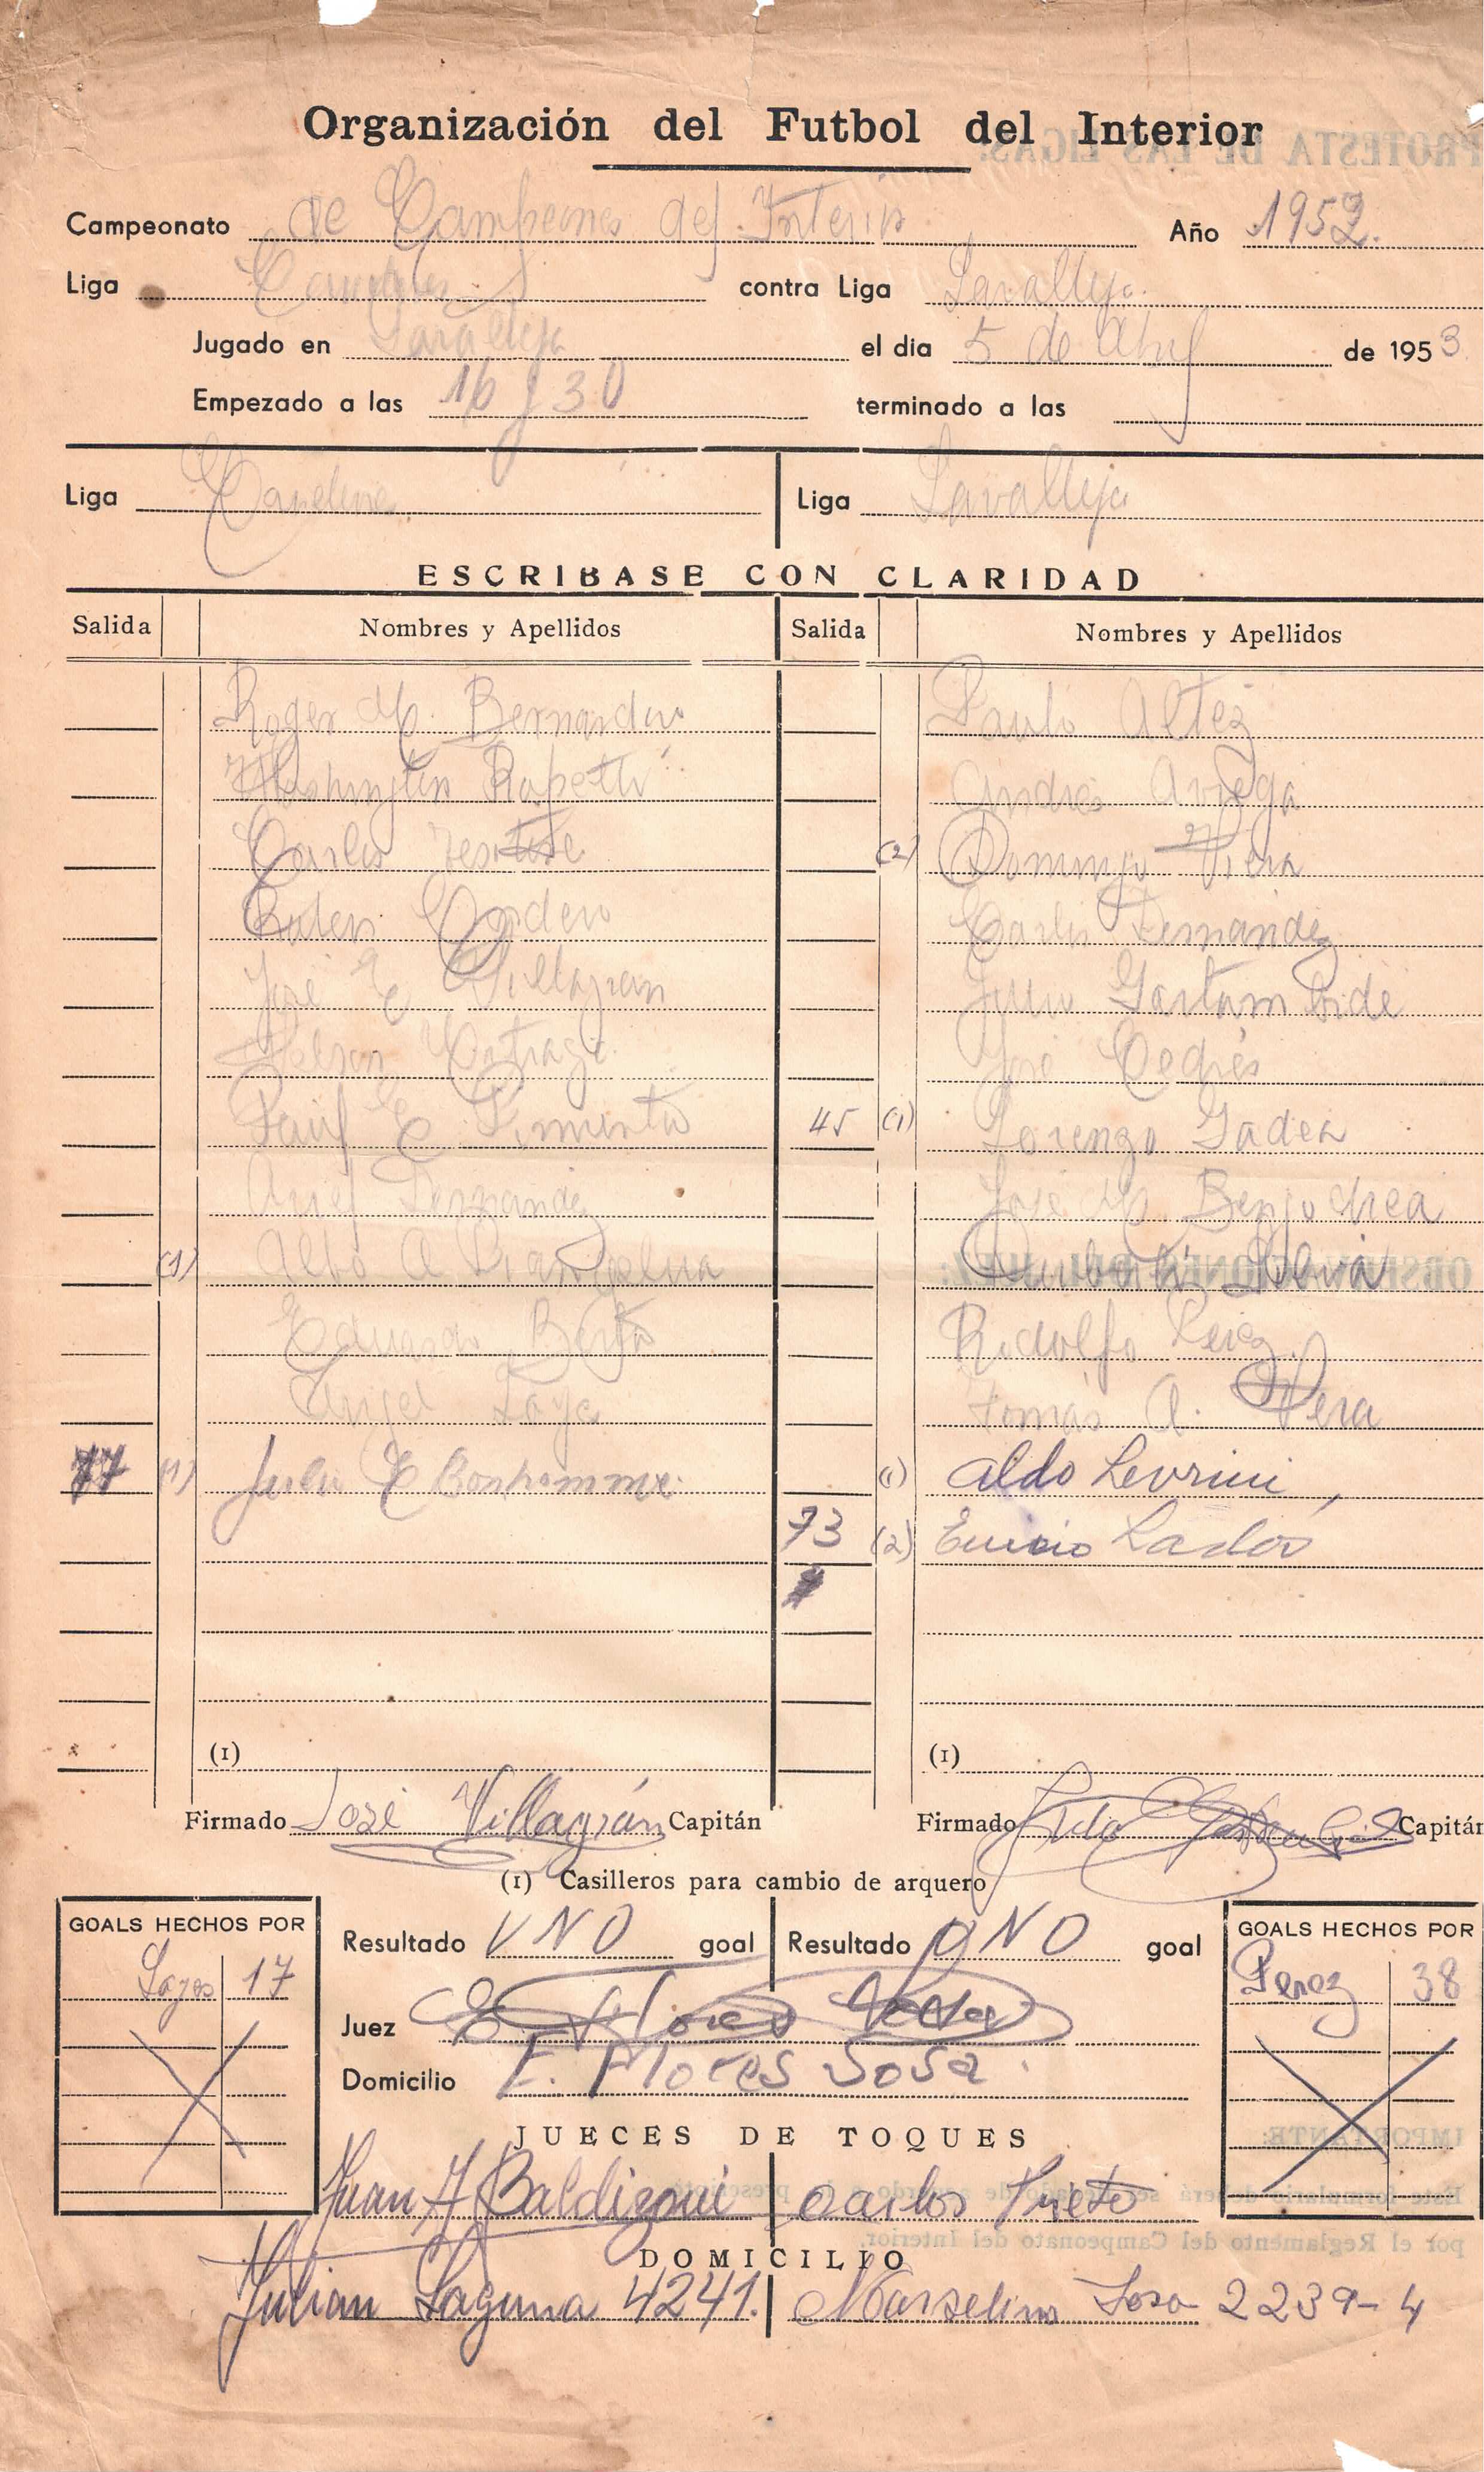 Organización del Futbol del Interior
Campeonato de Campeones del Interior Año 1952.
Liga Canelones contra Liga Lavalleja.
Jugado en Lavalleja el dia 5 de Abril de 1953
Empezado a las 16 y 30 terminado a las
Liga Canelones Liga Lavalleja
ESCRIBASE CON CLARIDAD
Salida Nombres y Apellidos Salida Nombres y Apellidos
Roger M. Bernardino Paulo Altez
Washington Rapetti Andrés Arrega
Carlos (2) Domingo Viera
Ruben Cordero Carlos Fernandez
José E Villagran Julio Gastambide
Nelson José Cedrés
Raul E Pimienta 45 (1) Lorenzo Gadea
Ariel Fernandez José M Bengochea
(1) Albo A Silvia
Eduardo Rodolfo Perez
Angel Tomás A. Vera
77 (1) Julio E Bonhomme (1) Aldo Levrini,
73 (2)
(1) (1)
Firmado José Villagrán Capitán Firmado Capitán
(1) Casilleros para cambio de arquero
GOALS HECHOS POR Resultado UNO goal Resultado UNO goal GOALS HECHOS POR
17 Perez 38
Juez
Domicilio E. Flores Sosa.
JUECES DE TOQUES
Juan A Baldizoni Carlos Prieto
DOMICILIO
Julian Laguna 4241. Marselino Sosa 2239-4
PROTESTA DE LAS LIGAS:
OBSERVACIONES DEL JUEZ:
IMPORTANTE:
Este formulario deberá ser de acuerdo
por el Reglamento del Campeonato del Interior.